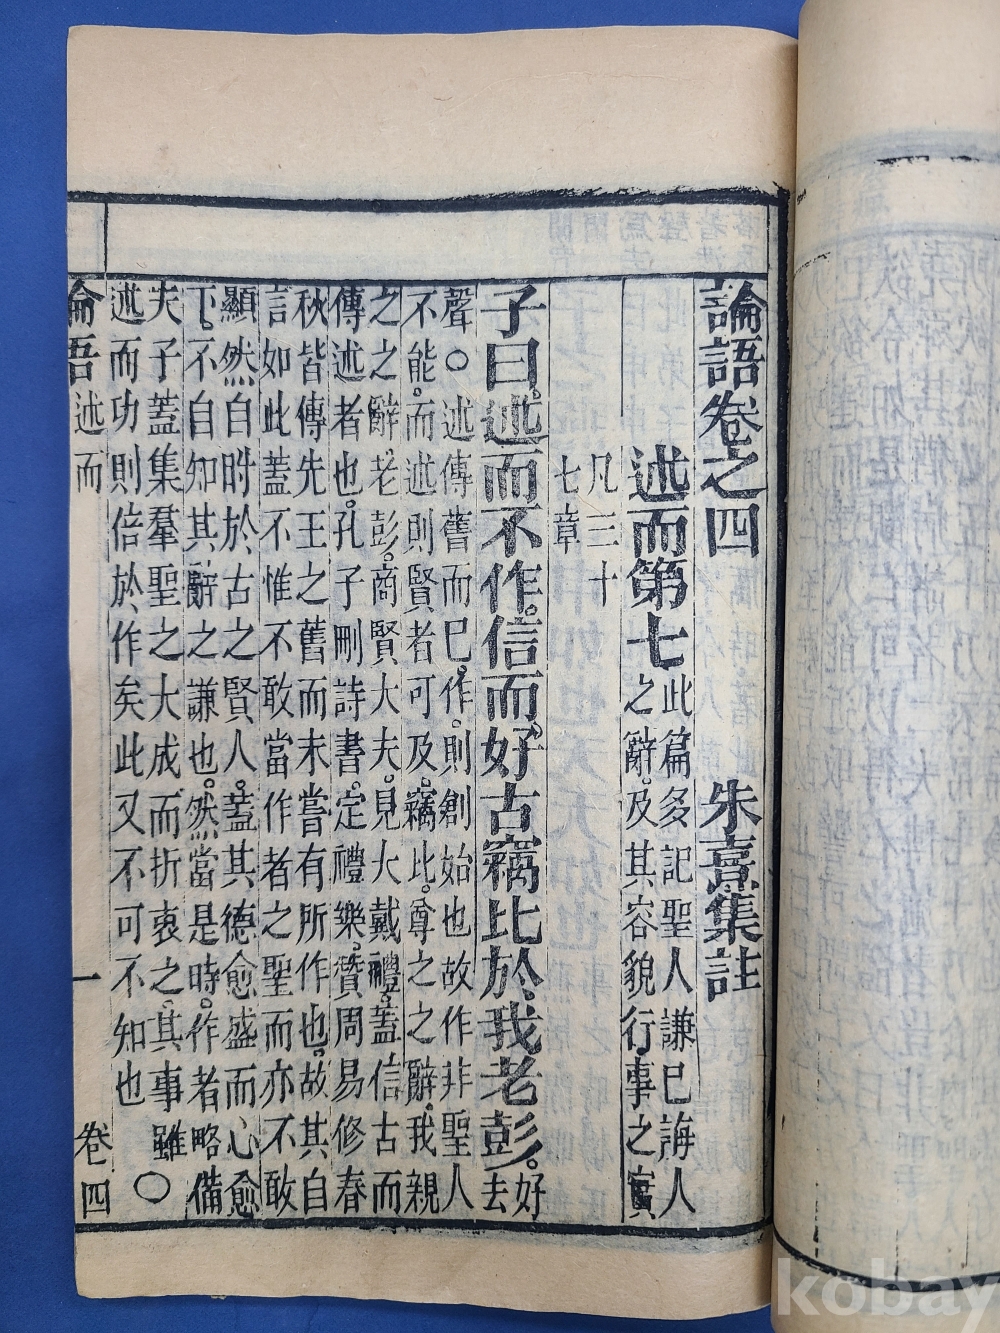 論語卷之四 朱熹集註
述而第七 此篇多記聖人謙已誨人
之辭。及其容貌行事之實
凡三十
七章
子曰。述而不作。信而好古。竊比於我老彭。好
去
聲。○述傳舊而已。作。則創始也。故作非聖人
不能。而述則賢者可及。竊比。尊之之辭。我親
之之辭。老彭。商賢大夫。見大戴禮。蓋信古而
傳述者也。孔子刪詩書。定禮樂。贊周易。修春
秋。皆傳先王之舊而未嘗有所作也。故其自
言如此。蓋不惟不敢當作者之聖而亦不敢
顯然自附於古之賢人。蓋其德愈盛而心愈
下。不自知其辭之謙也。然當是時。作者略備
夫子蓋集羣聖之大成而折衷之。其事雖○
述而功則倍於作矣此又不可不知也
論語 述而 一 卷四
kobay